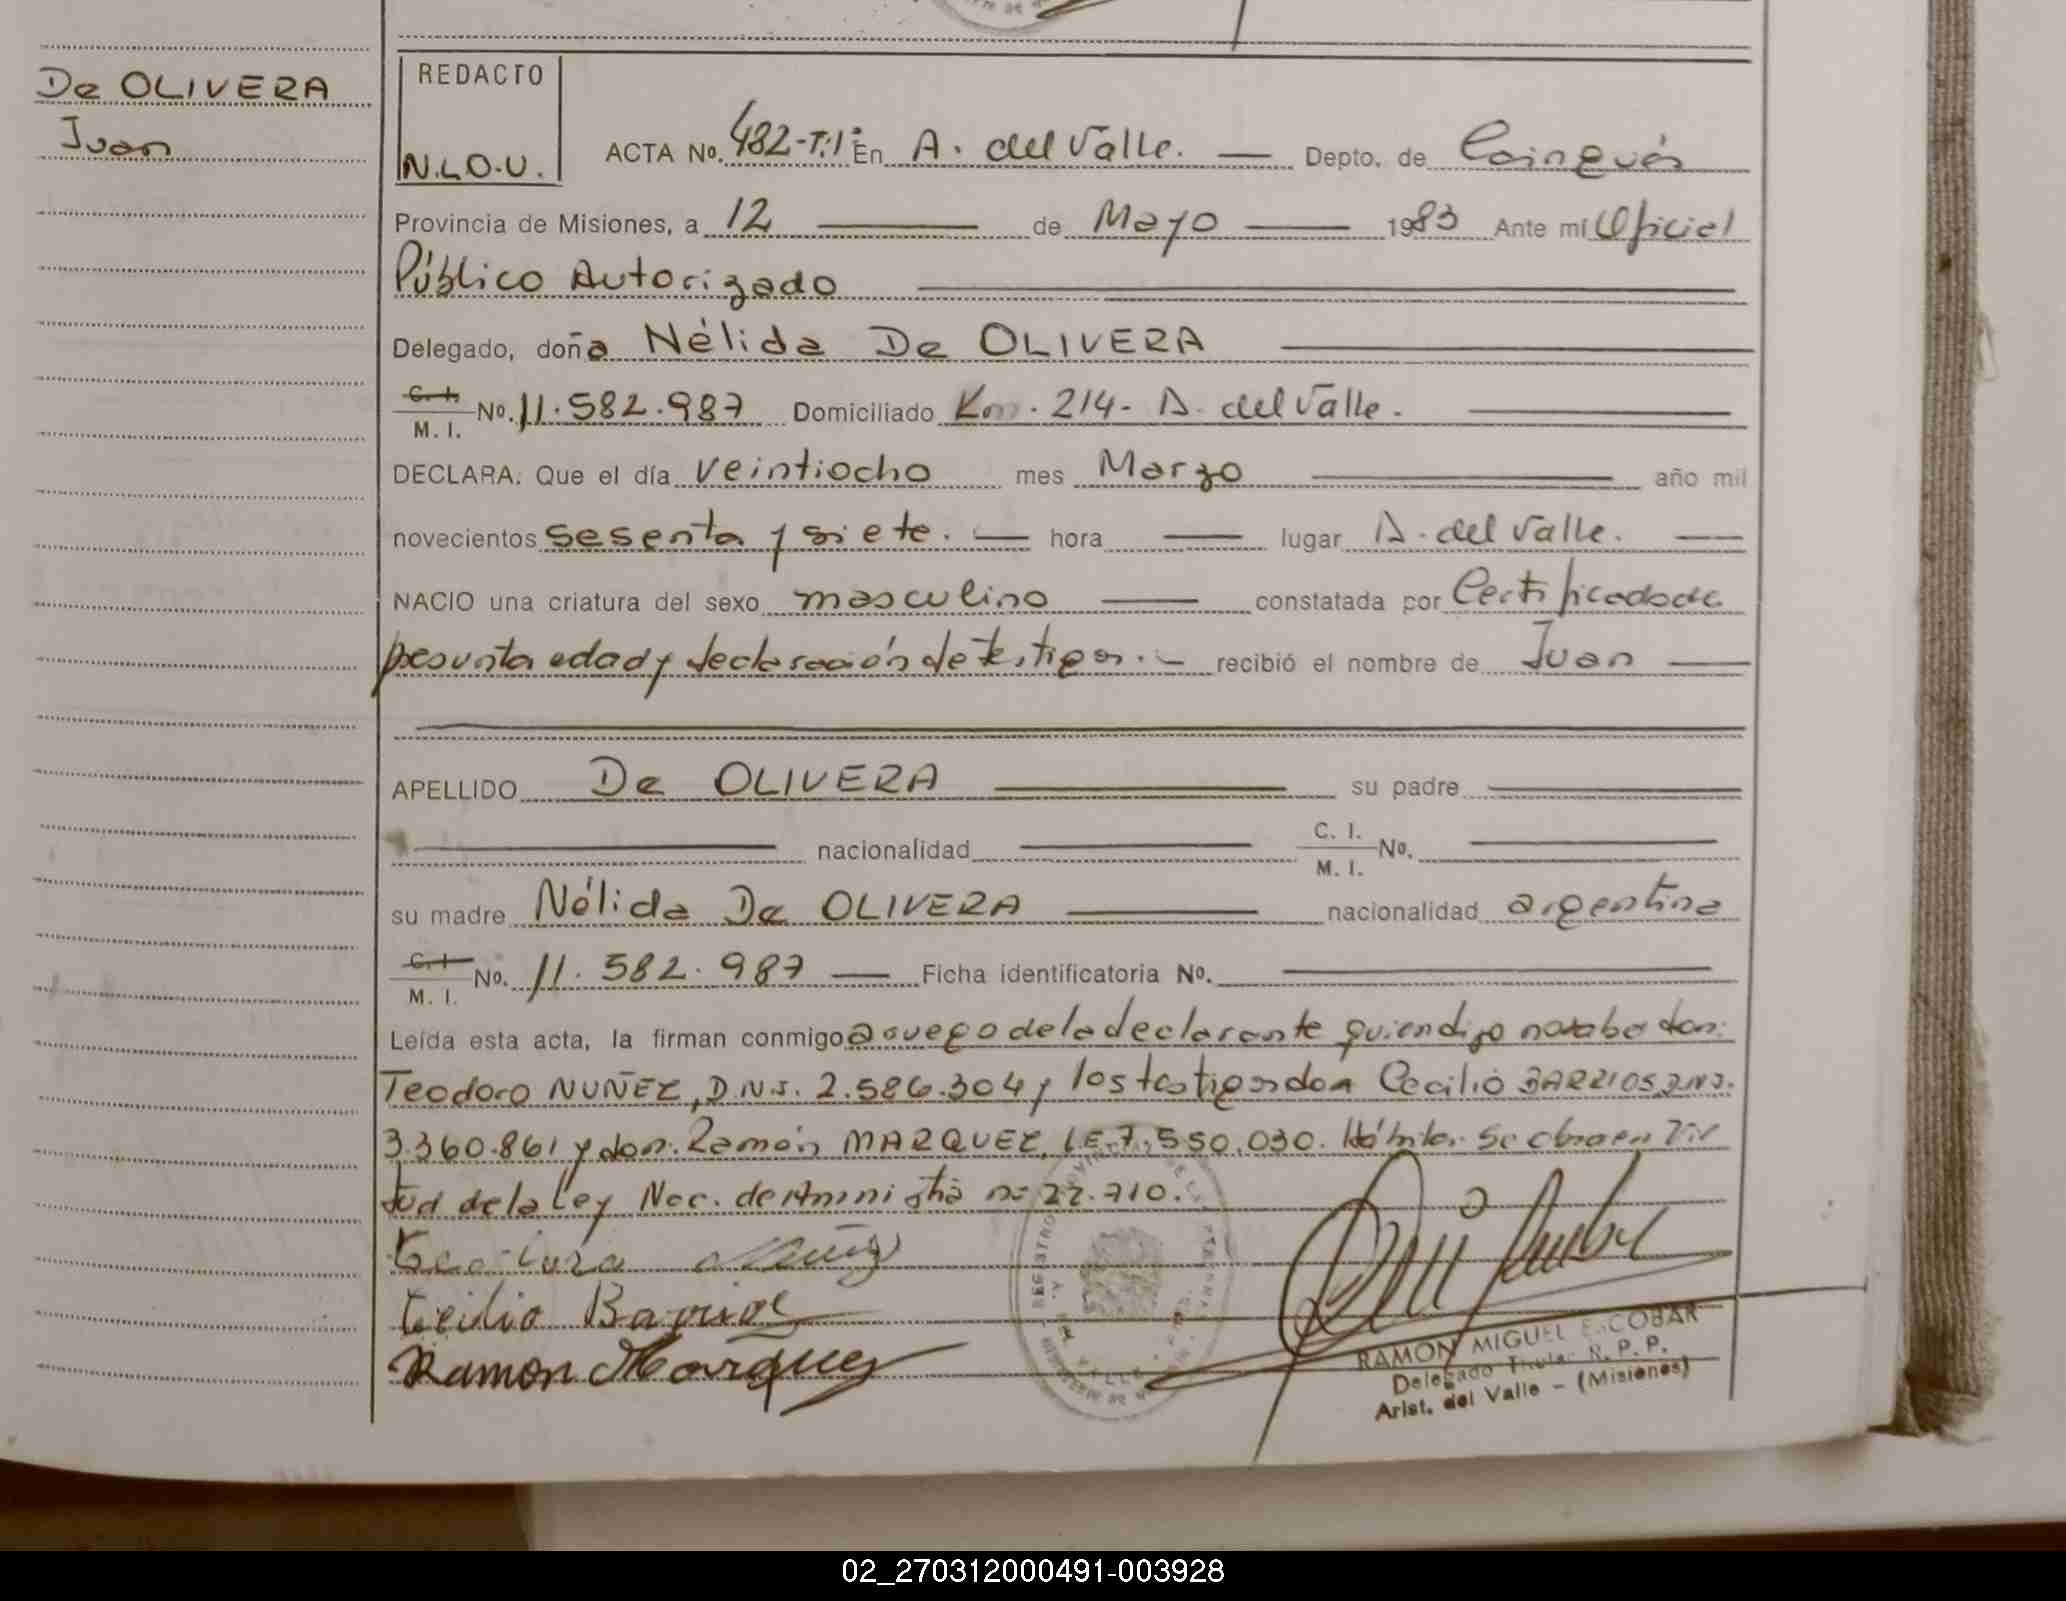 De OLIVERA
Juan
REDACTO
N.L.O.U.
ACTA No. 482-T:1º En A. del Valle. Depto. de Cainguás
Provincia de Misiones, a 12 de Mayo 1983 Ante mí Oficial
Público Autorizado
Delegado, doña Nélida De OLIVERA
C. I. M. I. No. 11.582.987 Domiciliado Km. 214- A. del Valle.
DECLARA: Que el día veintiocho mes Marzo año mil
novecientos sesenta y siete. hora lugar A. del Valle.
NACIO una criatura del sexo masculino constatada por Certificado de
presunta edad y declaración de testigos. recibió el nombre de Juan
APELLIDO De OLIVERA su padre
nacionalidad C. I. M. I. No.
su madre Nélida De OLIVERA nacionalidad argentina
C. I. M. I. No. 11.582.987 Ficha identificatoria No.
Leída esta acta, la firman conmigo a ruego de la declarante quien dijo no saber don:
Teodoro NUÑEZ, D.N.I. 2.586.304 y los testigos don Cecilio BARRIOS D.N.I.
3.360.861 y don: Ramón MARQUEZ, L.E. 7.550.030. Hábiles. Se labra en vir
tud de la Ley Nac. de Amnistía nº 22.710.
Teodoro Nuñez
Cecilio Barrios
Ramon Marquez
REGISTRO PROVINCIAL DE LAS PERSONAS
RAMON MIGUEL ESCOBAR
Delegado Titular R. P. P.
Arist. del Valle - (Misiones)
02_270312000491-003928